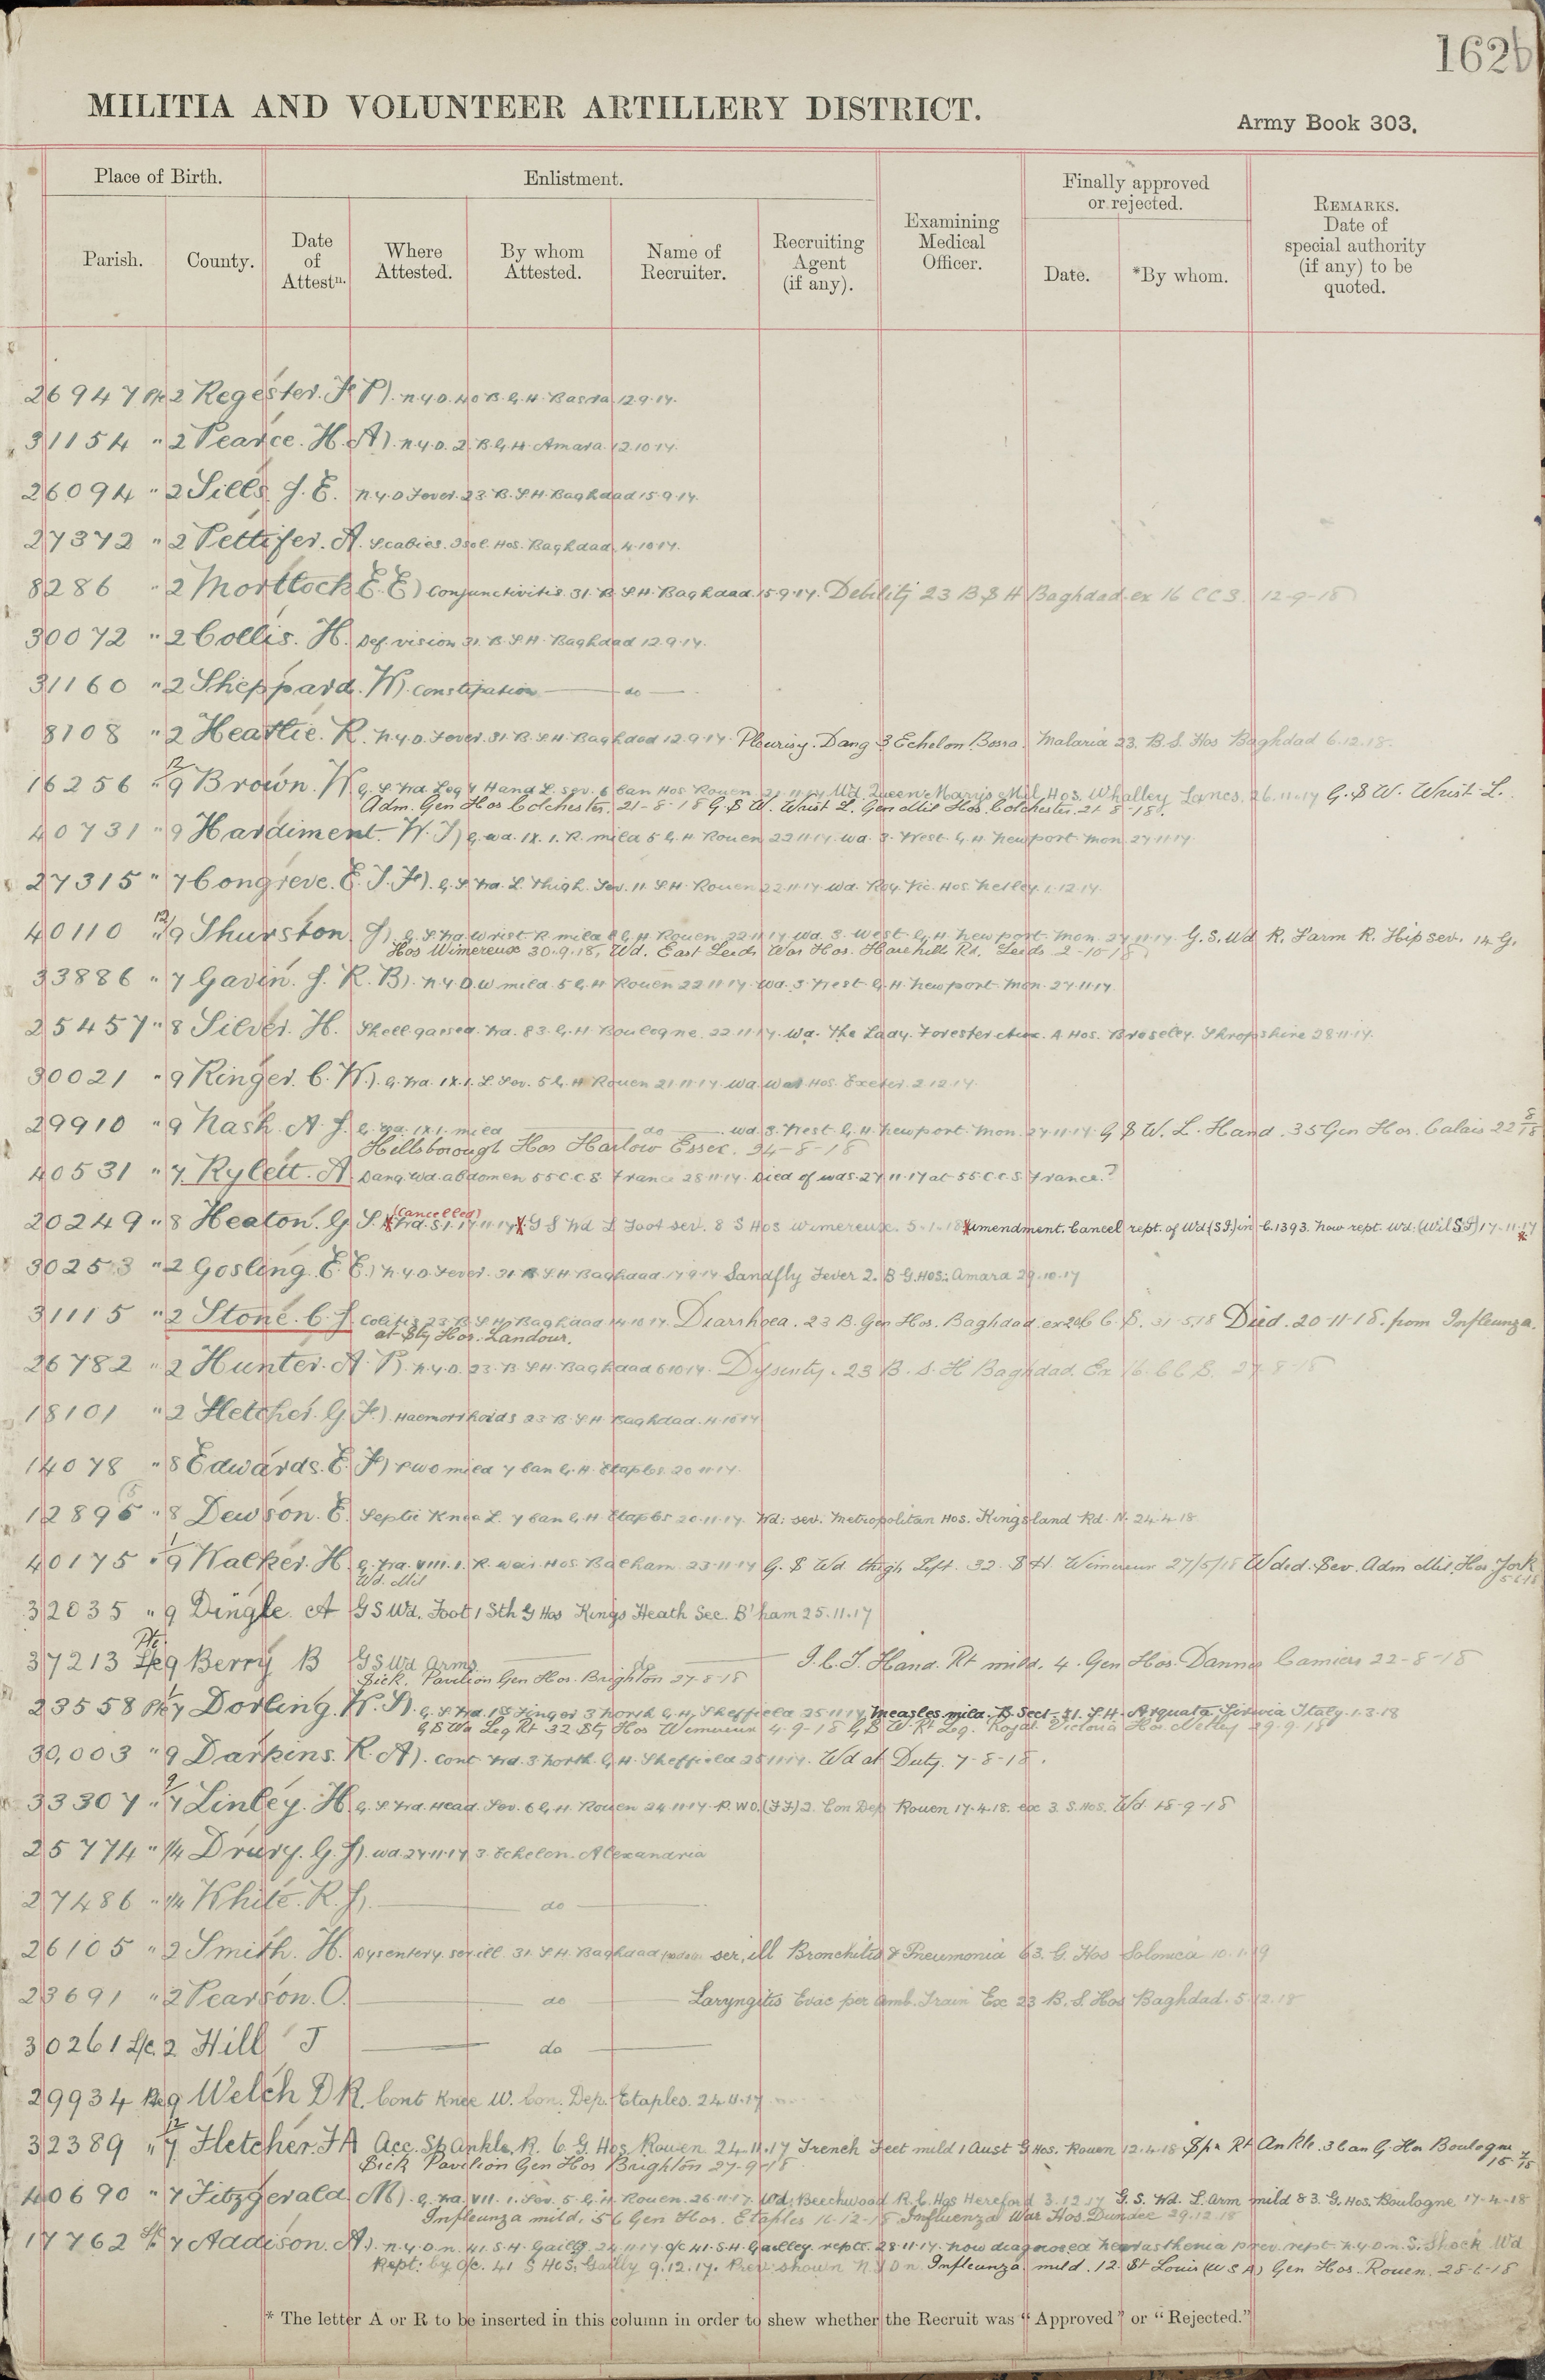 162b
MILITIA AND VOLUNTEER ARTILLERY DISTRICT.
Army Book 303.
Place of Birth.
Enlistment.
Finally approved
or rejected.
Parish.
County.
Date
of
Attestn.
Where
Attested.
By whom
Attested.
Name of
Recruiter.
Recruiting
Agent
(if any).
Examining
Medical
Officer.
Date.
*By whom.
REMARKS.
Date of
special authority
(if any) to be
quoted.
26947 Pte 2 Regester. F P). N.Y.D. 40 B.G.H. Basra 12.9.17.
31154 " 2 Pearce. H. A). N.Y.D. 2. B.G.H. Amara. 12.10.17.
26094 " 2 Sills J. E. N.Y.D Fever. 23. B. S.H. Baghdad 15.9.17.
27372 " 2 Pettifer. A. Scabies. Isol. Hos. Baghdad. 4.10.17.
8286 " 2 Mortlock E. E) Conjunctivitis. 31. B. S.H. Baghdad. 15.9.17. Debility 23 B S H Baghdad. ex 16 C C S. 12-9-18
30072 " 2 Collis. H. Def. vision 31. B. S.H. Baghdad 12.9.17.
31160 " 2 Sheppard. W). Constipation — do —
8108 " 2 Heattie. R. N.Y.D. Fever. 31. B. S.H. Baghdad 12.9.17. Pleurisy. Dang 3 Echelon Basra. Malaria 23. B. S. Hos Baghdad 6.12.18.
16256 " 12/9 Brown. W G. S. Wd. Leg & Hand L. Sev. 6 Can Hos Rouen 21.11.17 Wd. Queen Mary's Mil. Hos. Whalley Lancs. 26.11.17 G. S W. Wrist L.
Adm. Gen Hos Colchester. 21-8-18 G S W. Wrist L. Gen Mil Hos. Colchester. 21-8-18.
40731 " 9 Hardiment. W. J) G. Wd. IX. 1. R. mild 5 G. H Rouen 22.11.17. Wd. 3. West. G. H. Newport. Mon. 27.11.17.
27315 " 7 Congreve. E. J. F). G. S Wd. L. Thigh. Sev. 11. S.H. Rouen 22.11.17 Wd. Roy. Vic. Hos. Netley. 1.12.17.
40110 " 12/9 Thurston J) G. S. Wd Wrist R mild 8 G H Rouen 22.11.17 Wd. 3. West. G. H. Newport. Mon. 27.11.17. G. S. Wd R. Farm R. Hip sev. 14 G.
Hos Wimereux 30.9.18, Wd. East Leeds War Hos. Harehills Rd. Leeds. 2-10-18
33886 " 7 Gavin. J. R. B). N.Y.D.W mild. 5 G. H Rouen 22.11.17. Wd. 3 West G. H. Newport. Mon. 27.11.17.
25457 " 8 Silver. H. Shell gassed. Wd. 83. G. H. Boulogne. 22.11.17. Wd. The Lady. Forester Aux. A Hos. Broseley. Shropshire 28.11.17.
30021 " 9 Ringer. C. W). G. Wd. IX. 1. L. Sev. 5 G. H Rouen 21.11.17. Wd. War Hos. Exeter. 2.12.17.
29910 " 9 Nash A. J. G. Wd. IX.1. mild — do — Wd. 3. West. G. H. Newport. Mon. 27.11.17. G S W. L. Hand. 35 Gen Hos. Calais 22 8/18
Hillsborough Hos Harlow Essex. 24-8-18
40531 " 7. Rylett. A Dang. Wd. abdomen 55 C.C.S. France 25.11.17. Died of wds. 27.11.17 at 55 C.C.S. France.?
20249 " 8 Heaton. G S. (Cancelled) Wd. S.I. 17.11.17. G S Wd L Foot sev. 8 S Hos Wimereux. 5-1-18 Amendment. Cancel rept. of Wd (S.I) in C.1393. Now rept. Wd. (Wil S.I) 17-11-17
30253 " 2 Gosling. E. E.) N.Y.D Fever. 31 B. S.H. Baghdad 17.9.17 Sandfly Fever 2. B G. HOS: Amara 29.10.17
31115 " 2 Stone. C. J. Colitis 23 B. S.H. Baghdad 14.10.17. Diarrhoea. 23 B. Gen Hos. Baghdad. ex 20 C C. S. 31-5-18 Died. 20-11-18. from Infleunza.
at Stg Hos. Landour.
26782 " 2 Hunter. A. P). N.Y.D. 23. B S.H. Baghdad 6.10.17. Dysenty. 23 B. S. H Baghdad. Ex 16. C C S. 27-8-18
18101 " 2 Fletcher. G F.) Haemorrhoids 23 B. S.H. Baghdad. 4.10.17
14078 " 8 Edwards. E. F) P.W.O mild 7 Can G. H. Etaples. 20.11.17.
12895 " 8 Dewson. E. Septic Knee L. 7 Can G. H Etaples 20.11.17. Wd: sev. Metropolitan Hos. Kingsland Rd. N. 24.4.18
40175 " 1/9 Walker. H. G. Wd. VIII. 1. R. Weir. Hos. Balham. 23.11.17 G. S Wd thigh Left. 32. S H. Wimereux 27/5/18 Wded. Sev. Adm Mil. Hos York
Wd. Mil 5-6-18
32035 " 9 Dingle A GS Wd. Foot 1 Sth G Hos Kings Heath Sec. B'ham 25.11.17
37213 Pte 9 Berry B GS Wd Arms — do — I. C. T. Hand. Rt mild. 4. Gen Hos. Dannes Camiers 22-8-18
Sick. Pavilion Gen Hos. Brighton 27-8-18
23558 Pte 7 Dorling. W. J). G. S. Wd. 1st Finger 3 North G. H. Sheffield 25.11.17 Measles mild. B Sect-31. S. H. Arquata Scrivia Italy. 1.3.18
G S Wd Leg Rt 32 Stg Hos Wimereux 4-9-18 G S W Rt Leg. Royal Victoria Hos. Netley 29.9.18
30,003 " 9 Darkins. R. A). Cont Wd. 3 North. G. H. Sheffield 25.11.17. Wd at Duty. 7-8-18.
33307 " 9/7 Linley. H. G. S. Wd. Head. Sev. 6 G. H. Rouen 24.11.17. P.W.O. (F.F) 2. Con Dep Rouen 17.4.18. ex 3. S. HOS. Wd 18-9-18
25774 " 1/4 Drury. G. J). Wd. 27.11.17 3. Echelon. Alexandria
27486 " 1/4 White. R. J). — do —
26105 " 2 Smith. H. Dysentery. ser ill. 31. S.H. Baghdad ser, ill Bronchitis & Pneumonia 63. G. Hos Salonica 10.1.19
23691 " 2 Pearson. O. — do — Laryngitis Evac per Amb. Train Ex 23 B. S. Hos Baghdad. 5.12.18
30261 L/c. 2 Hill J — do —
29934 Pte 9 Welch D R. Cont Knee W. Con. Dep. Etaples. 24.11.17
32389 " 12/7 Fletcher. F A Acc. Sp Ankle. R. 6. G. Hos Rouen 24.11.17 Trench Feet mild 1 Aust G Hos. Rouen 12.4.18 Spn Rt Ankle. 3 Can G. Hos Boulogne
Sick Pavilion Gen Hos Brighton 27-9-18
40690 " 7 Fitzgerald M). G. Wd. VII. 1. Sev. 5. G. H. Rouen. 26.11.17. Wd: Beechwood R. C. Hos Hereford 3.12.17 G. S. Wd. L. Arm mild 83. G. Hos. Boulogne 17-4-18
Infleunza mild. 56 Gen Hos. Etaples 16-12-18 Influenza War Hos. Dundee 29.12.18
17762 L/c 7 Addison. A). N.Y.D.N. 41. S.H. Gailly. 24.11.17 O/C 41. S.H. Gailley. repts. 28.11.17. now diagnosed Neurasthenia prev. rept. N.Y.D.N. S. Shock Wd
Rept. by O/c. 41 S HOS. Gailly 9.12.17. Prev: shown N.Y.D.n. Infleunza. mild. 12. St Louis (U S A) Gen Hos. Rouen. 28-6-18
* The letter A or R to be inserted in this column in order to shew whether the Recruit was "Approved" or "Rejected."